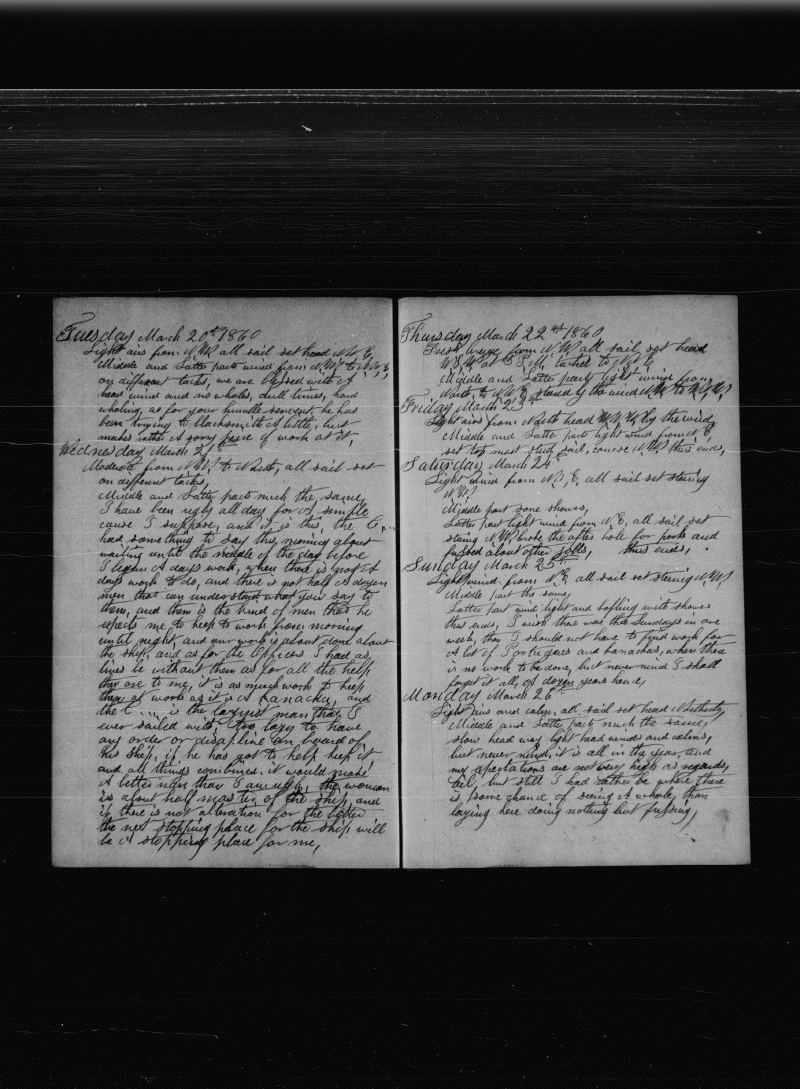 Tuesday March 20th 1860
Light airs from N.W. all sail set head N.E.
Middle and Latter parts wind from
on different tacks, we are blessed with
head wind and no whales, dull times, hard
whaling, as for your humble servent he has
been trying to blacksmith A little, but
makes rather A sorry piece of work at it,
Wednesday March 21st
Moderate from N.W. to North, all sail set
on different tacks,
Middle and Latter parts much the same,
I have been ugly all day for A simple
cause I suppose, and it is this, the C...
had something to say this morning about
waiting until the middle of the day before
I began A days work, when there is not A
days work to do, and there is not half A dozen
men that can understand what you say to
them, and them is the kind of men that he
expects me to keep to work from morning
until night, and our work is about done about
the ship, and as for the Officers I had as
lives be without them as for all the help
they are to me, it is as much work to keep
them at work as it is A Kanacka, and
the C... is the lazyist man that I
ever sailed with, too lazy to have
any order or disapline on board of
his ship, if he has got to help keep it
and all things combined, it would make
A better man than I am ugly, the woman
is about half master of the ship, and
if there is not alteration for the better
the next stopping place for the ship will
be A stopping place for me,
Thursday March 22nd 1860
Fresh breeze from N.W. all sail set head
W.S.W. at 5 P.M. tacked to N.E.
Middle and Latter parts light wind from
North, to N.W. steard by the wind
Friday March 23rd
Light airs from North head W.N.W. by the wind,
Middle and Latter parts light wind from N.E.
set top mast stud sail, course N.W. thus ends,
Saturday March 24th
Light wind from N.E. all sail set stering
N.W.
Middle part some showes,
Latter part light wind from N.E. all sail set
stering N.W. broke the after hole for pork and
fussed about other jobbs, thus ends,
Sunday March 25th
Light wind from N.E. all sail set stering N.W.
Middle part the same,
Latter part wind light and bafling with showes
thus ends, I wish there was two Sundays in one
week, then I should not have to find work for
A lot of Portegues and Kanackas, when there
is no work to be done, but never mind I shall
forget it all, A dozen years hence,
Monday March 26th
Light airs and calm, all sail set head Northerly,
Middle and Latter parts much the same,
slow head way light head winds and calms,
but never mind, it is all in the year, and
my expectations are not very high as regards,
oil, but still I had rather be where there
is some chance of seeing A whale, than
laying here doing nothing but fussing,